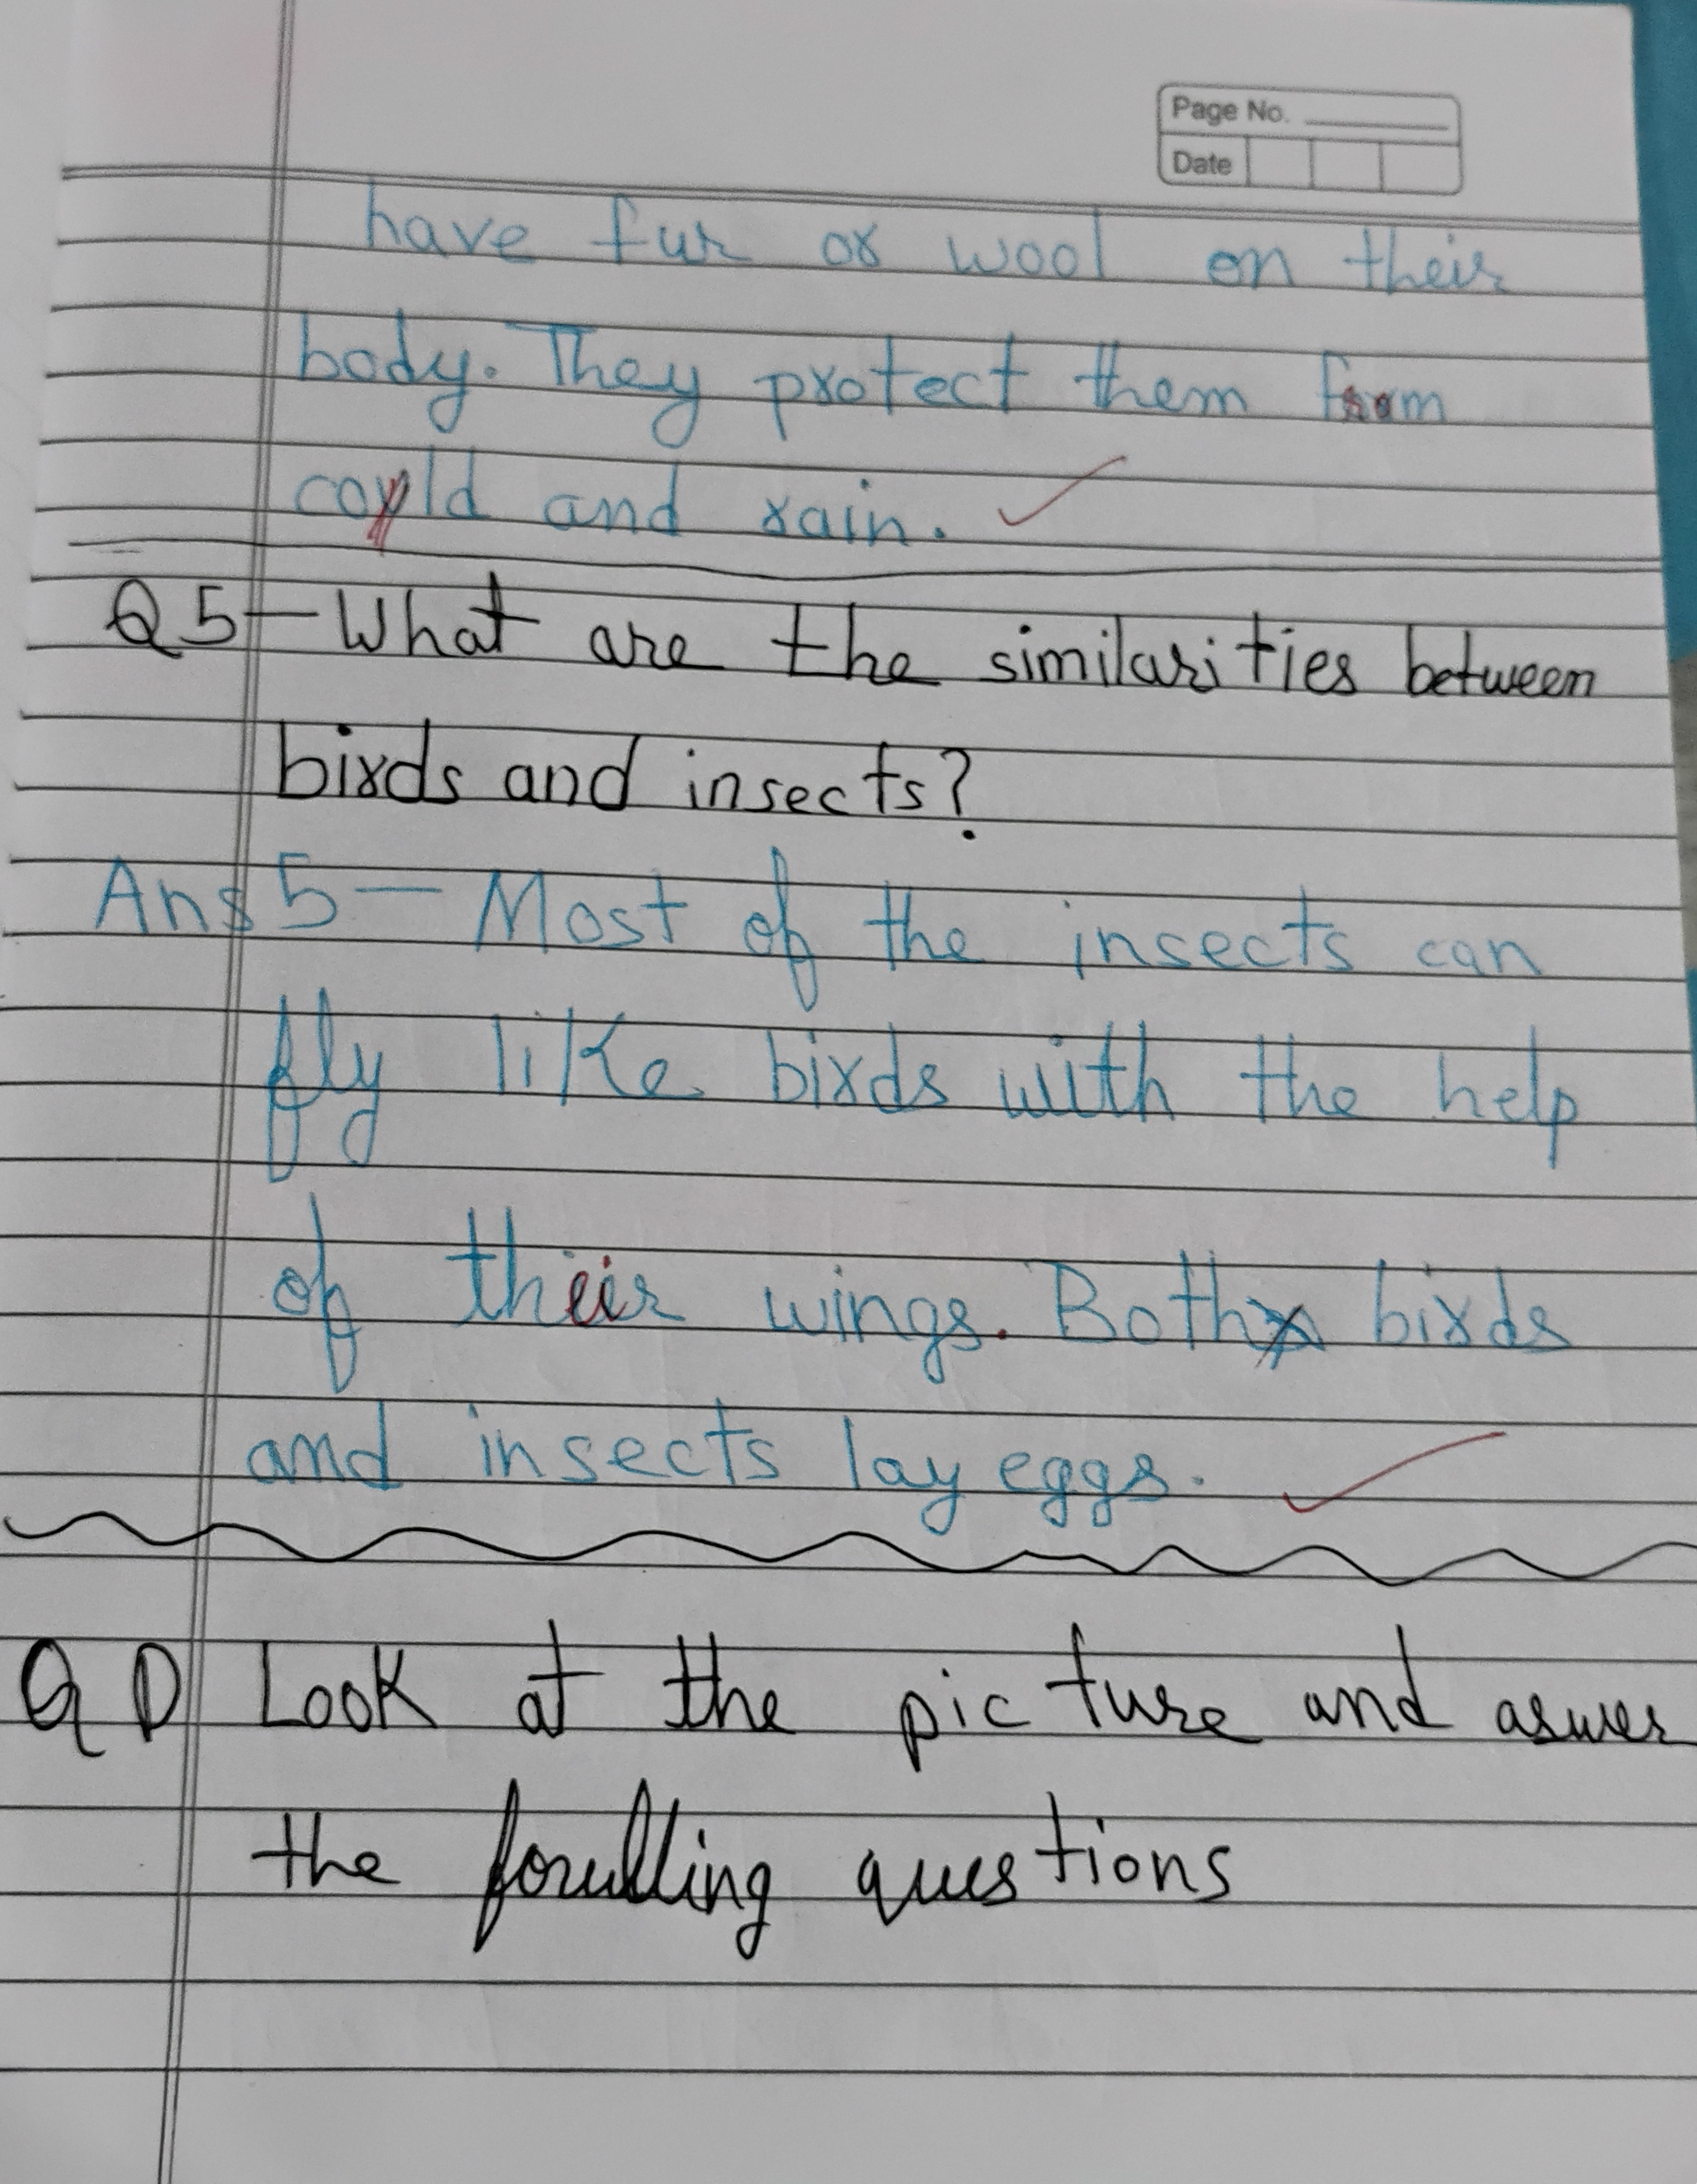 Page No.
Date
have fur or wool on their
body. They protect them from
could and rain.
Q5-What are the similarities between
birds and insects?
Ans5- Most of the insects can
fly like birds with the help
of their wings. Both birds
and insects lay eggs.
Q D Look at the picture and aswer
the foulling questions